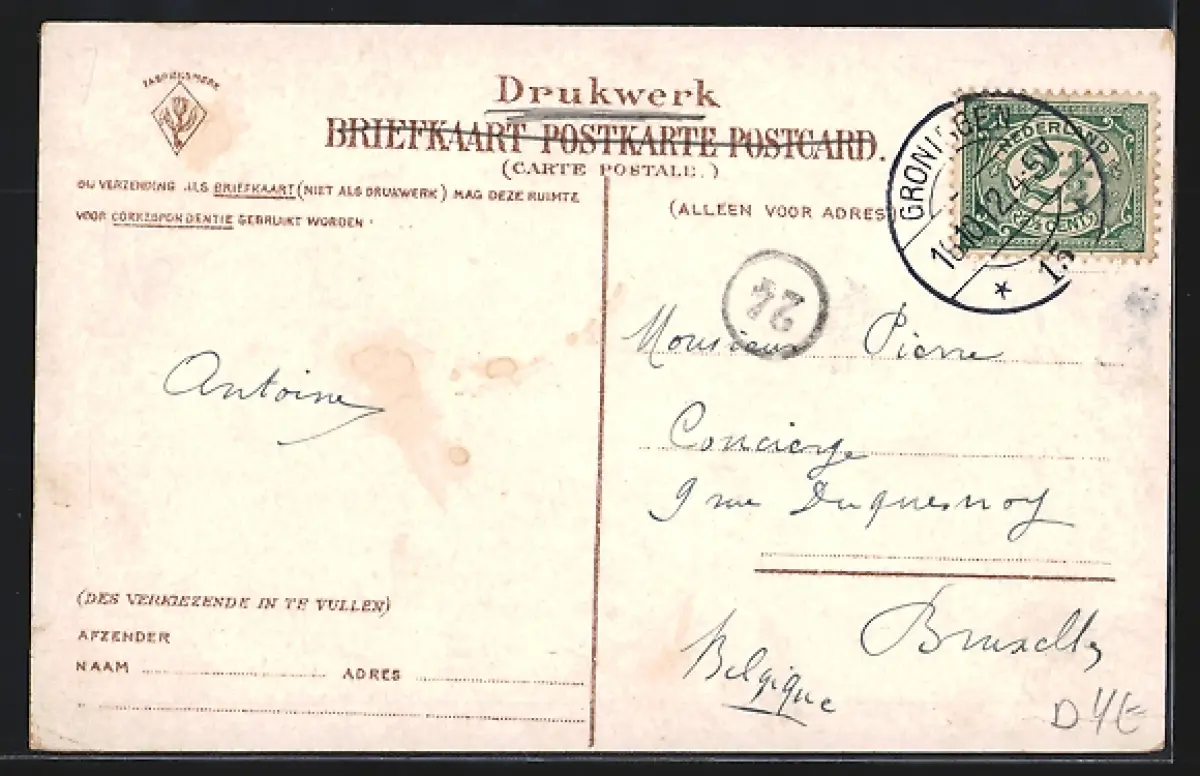 FABRIEKSMERK
Drukwerk
BRIEFKAART POSTKARTE POSTCARD.
(CARTE POSTALE.)
BIJ VERZENDING ALS BRIEFKAART (NIET ALS DRUKWERK) MAG DEZE RUIMTE
VOOR CORRESPONDENTIE GEBRUIKT WORDEN.
(ALLEEN VOOR ADRES)
GRONINGEN
10.12.4-5N
1.5
NEDERLAND
2½
(2½ CENT)
24
Monsieur Pierre
Antoine
Concierge
9 rue Duquesnoy
Bruxelles
Belgique
(DES VERKIEZENDE IN TE VULLEN)
AFZENDER
NAAM ADRES
D4E